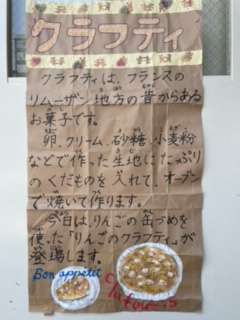 クラフティ
クラフティは、フランスの
リムーザン地方の昔からある
お菓子です。
卵、クリーム、砂糖、小麦粉
などで作った生地にたっぷり
のくだものを入れて、オーブン
で焼いて作ります。
今日は、りんごの缶づめを
使った「りんごのクラフティ」が
登場します。
Bon appétit